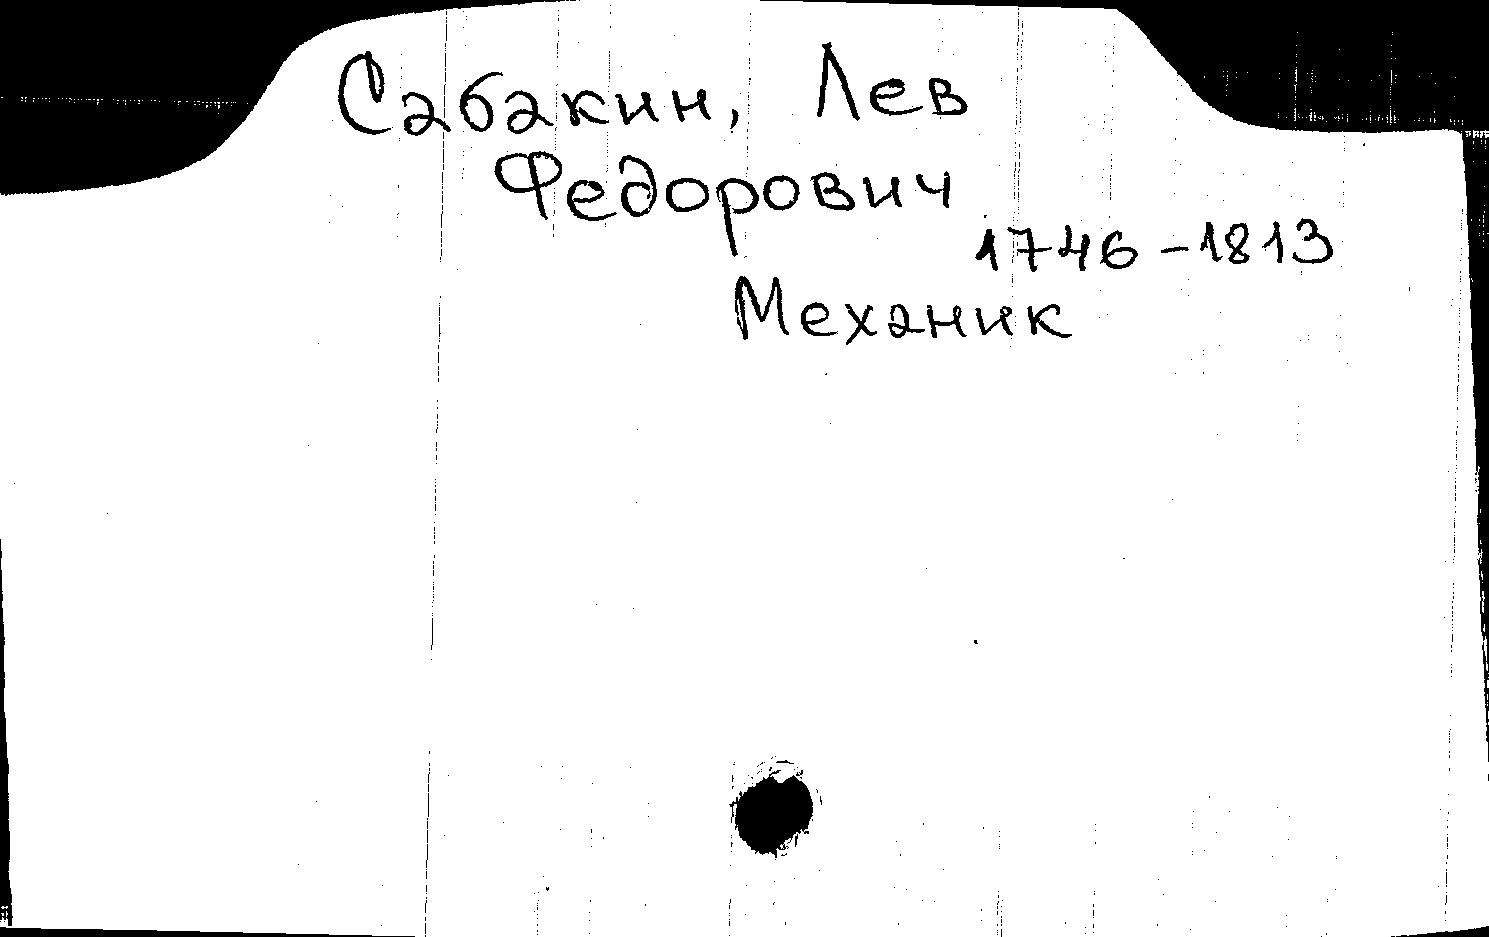 Сабакин, Лев
Федорович
1746-1813
Механик